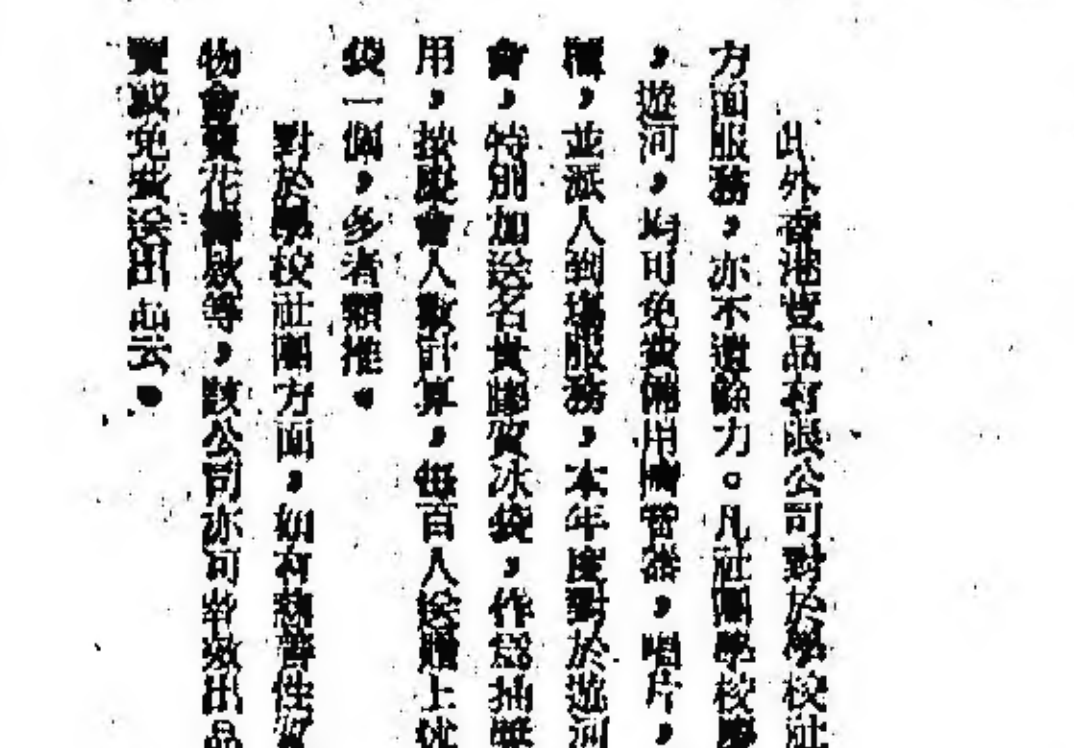 此外香港荳品有限公司對於學校社
方面服務，亦不遺餘力。凡社團學校
，遊河，均可免費借用播音器，唱片，
，並派人到場服務，本年度對於遊河
會，特別加送名貴膠質冰袋，作爲抽獎
用，按聚會人數計算，每百人送贈上述
袋一個，多者類推。
對於學校社團方面，如有慈善性質
物會賣花籌欵等，該公司亦可將出品
賣或免費送出云。